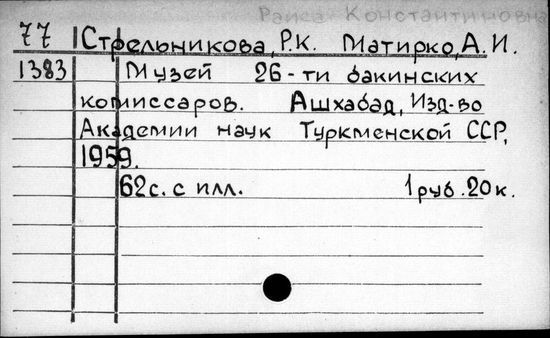 Раиса Константиновна
77 Стрельникова, Р.К. Матирко, А.И.
1383 Музей 26-ти бакинских
комиссаров. Ашхабад, Изд-во
Академии наук Туркменской ССР,
1959.
62с. с илл. 1 руб. 20 к.